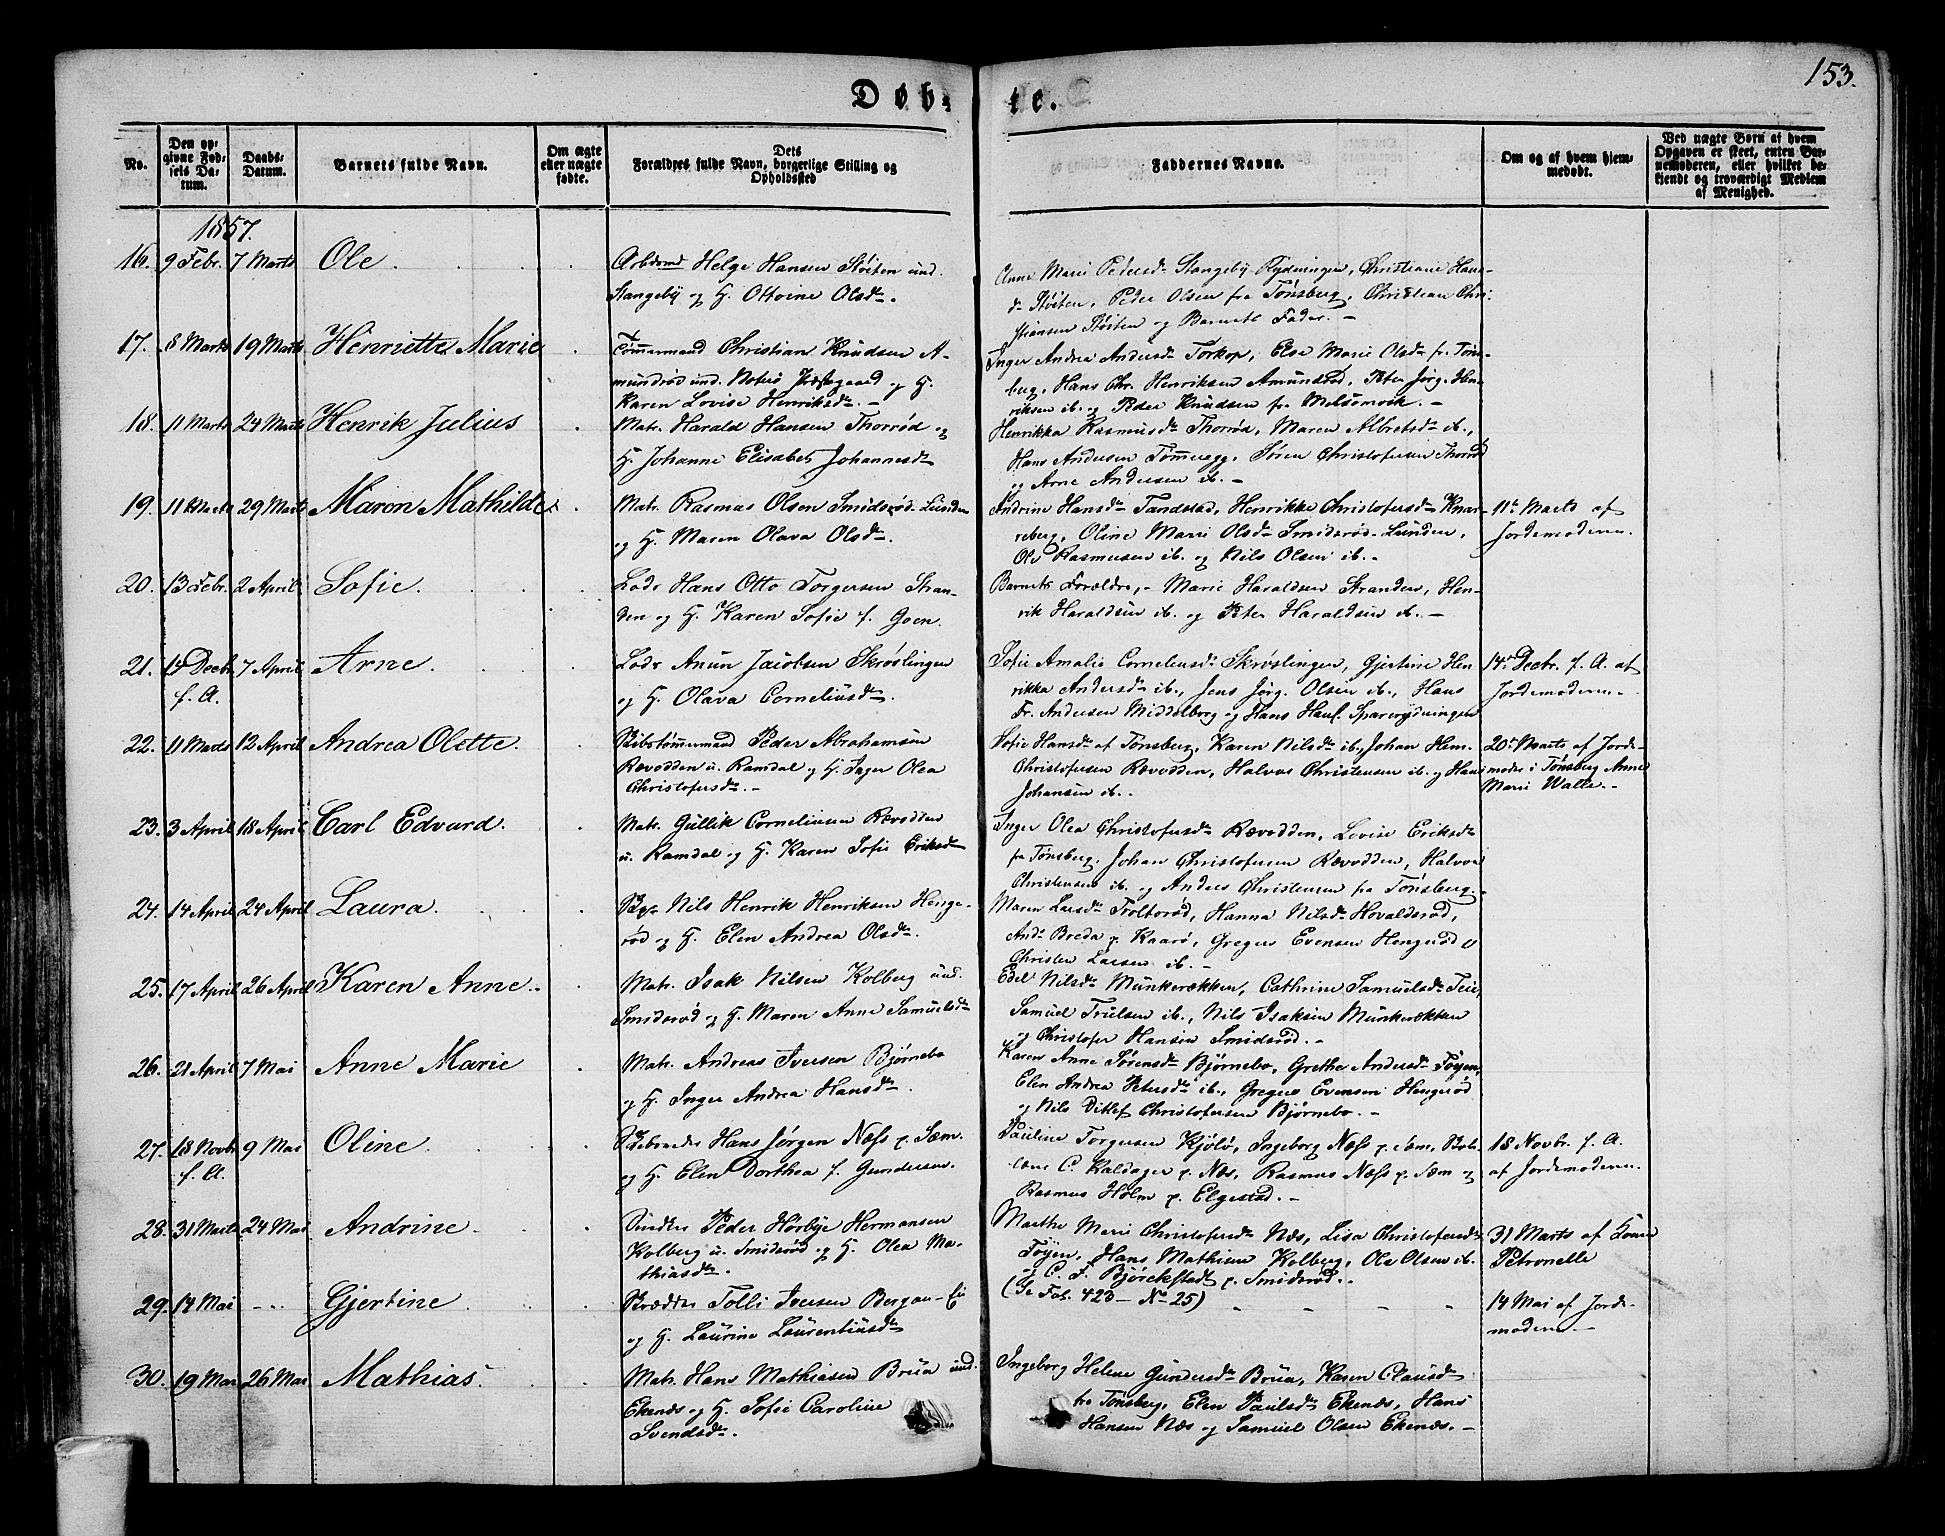 153.
Døbte.
No.
Den opgivne Fødsels Datum.
Daabs-Datum.
Barnets fulde Navn.
Om ægte eller uægte fødte.
Dets Forældres fulde Navn, borgerlige Stilling og Opholdssted
Faddernes Navne.
Om og af hvem hjemmedøbt.
Ved uægte Børn af hvem Opgaven er skeet, enten Barnemoderen, eller hvilket bekjendt og troværdigt Medlem af Menighed.
1857.
16. 9 Febr. 7 Marts Ole.
Arbdsmd Helge Hansen Støiten und.
Stangeby og H. Ottvine Olsdr.
Anne Marie Pedersd. Stangeby Rydningen, Christiane Hans-
dr Støiten, Peder Olsen fra Tønsberg, Christian Chri-
stiansen Støiten og Barnets Fader. -
17. 8 Marts 19 Marts Henriette Marie
Tømmermand Christian Knudsen A-
mundrød und. Nøterø Præstegaard og H.
Karen Lovise Henriksdr. -
Inger Andrea Andersdr Torkop, Else Marie Olsdr fr. Tøns-
berg, Hans Chr. Henriksen Amundrød, Peter Jørg. Hen-
riksen ib. og Peder Knudsen fra Melsomvik. -
18. 11 Marts 24 Marts Henrik Julius
Matr. Harald Hansen Thorrød og
H. Johanne Elisabet Johannesdr
Henrikka Rasmusdr Thorrød, Maren Albretsdr ib.,
Hans Andersen Tømmeregg, Søren Christofersen Thorrød
og Arne Andersen ib. -
19. 11 Marts 29 Marts Maren Mathilde.
Matr. Rasmus Olsen Smidsrød-Lunden
og H. Maren Olava Olsdr.
Andrine Hansdr Tandstad, Henrikke Christofersdr Knar-
reberg, Oline Marie Olsdr Smidsrød-Lunden,
Ole Rasmusen ib. og Nils Olsen ib. -
11te Marts af
Jordemoderen.
20. 13 Febr. 2 April Sofie.
Lods Hans Otto Torgersen Stran-
den og H. Karen Sofie f. Goen.
Barnets Forældre, - Marie Haraldsen Stranden, Hen-
rik Haraldsen ib. og Peter Haraldsen ib. -
21. 14 Decbr. 7 April Arne.
f. A.
Lods Anun Jacobsen Skrøslingen
og H. Olava Corneliusdr.
Sofie Amalie Corneliusdr Skrøslingen, Gjertine Hen-
rikka Andersdr ib., Jens Jørg. Olsen ib., Hans
Fr. Andersen Middelborg og Hans Hansf. Sparerydningen
14de Decbr. f. A. af
Jordemoderen. -
22. 11 Marts 12 April Andrea Olette.
Skibstømmermand Peder Abrahamsen
Rævodden u. Ramdal og H. Inger Olea
Christofersdr. -
Sofie Hansdr af Tønsberg, Karen Nilsdr ib., Johan Hem.
Christofersen Rævodden, Halvor Christensen ib. og Hans
Johansen ib. -
20de Marts af Jorde-
moder i Tønsberg Anne
Marie Walle. -
23. 3 April 18 April Carl Edvard.
Matr. Gullik Corneliusen Rævodden
u. Ramdal og H. Karen Sofie Eriksdr
Inger Olea Christofersdr Rævodden, Lovise Eriksdr
fr. Tønsberg, Johan Christofersen Rævodden, Halvor
Christensen ib. og Anders Christensen fra Tønsberg. -
24. 14 April 24 April Laura.
Nils Henrik Henriksen Henge-
rød og H. Elen Andrea Olsdr.
Maren Larsdr Foltorød, Hanna Nilsdr Hovaldsrød,
Andr. Breda p. Kaarø, Gregers Evensen Hengerød og
Christen Larsen ib. -
25. 17 April 26 April Karen Anne.
Matr. Isak Nilsen Kolberg und.
Smidsrød og H. Maren Anne Samuelsdr
Edel Nilsdr Munkerækken, Cathrine Samuelsdr Teie,
Samuel Truelsen ib., Nils Isaksen Munkerækken
og Christofer Hansen Smidsrød. -
26. 21 April 7 Mai Anne Marie
Matr. Andreas Iversen Bjørnebo
og H. Inger Andrea Hansdr.
Karen Anne Sørensdr Bjørnebo, Grethe Andersdr Føyen,
Elen Andrea Petersdr ib., Gregers Evensen Hengerød
og Nils Ditlef Christofersen Bjørnebo. -
27. 18 Novbr 9 Mai Oline.
f. A.
Skibsreder Hans Jørgen Næss p. Sæm.
og H. Elen Dorthea f. Gundersen.
Pauline Torgersen Kjølø, Ingeborg Næss p. Sæm,
C. Kaldager p. Næs, Rasmus Næss p. Sæm og
Rasmus Holm p. Elgestad. -
18 Novbr. f. A.
af Jordemoderen.
28. 31 Marts 24 Mai Andrine.
Peder Hørbye Hermansen
Kolberg u. Smidsrød og H. Olea Ma-
thiasdr. -
Marthe Marie Christofersdr Næs, Lisa Christofersdr
Føyen, Hans Mathisen Kolberg, Ole Olsen ib.
og C. F. Bjørckstedt p. Smidsrød. -
31 Marts af Kone
Petronelle
29. 14 Mai - - - Gjertine.
Skrædder Tolli Iversen Bergan-Ei
og H. Laurine Laurentiusdr
(Se Fol. 423 - No 25)
14 Mai af Jorde-
moderen. -
30. 19 Mai 26 Mai Mathias.
Matr. Hans Mathiasen Brua und.
Ekenæs og H. Sofie Caroline
Svendsdr.
Ingeborg Helene Gundersdr Brua, Karen Clausdr
fra Tønsberg, Elen Paulsdr Ekenæs, Hans
Hansen Næs og Samuel Olsen Ekenæs. -